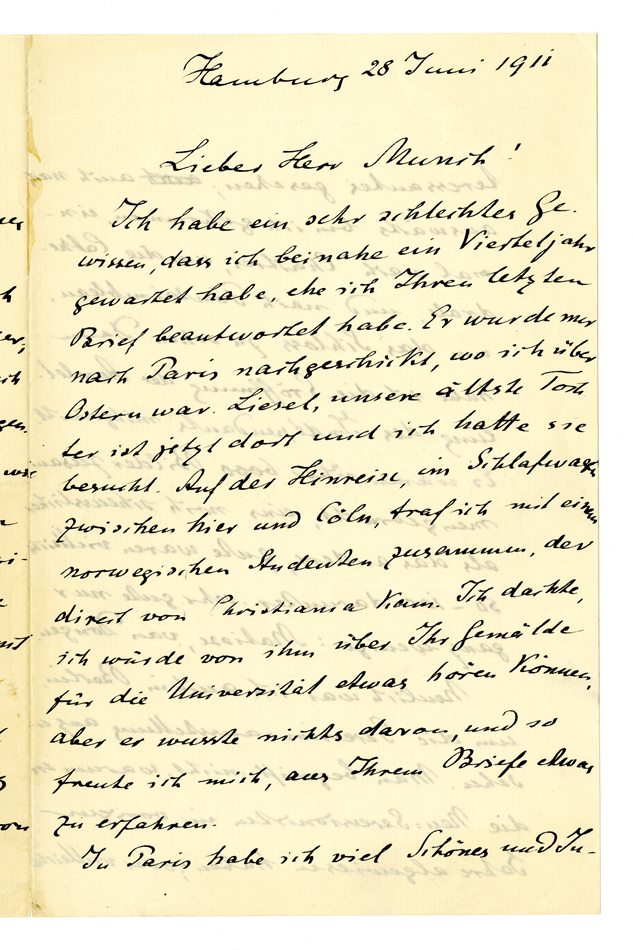 Hamburg 28 Juni 1911
Lieber Herr Munch!
Ich habe ein sehr schlechtes Ge-
wissen, dass ich beinahe ein Vierteljahr
gewartet habe, ehe ich Ihren letzten
Brief beantwortet habe. Er wurde mir
nach Paris nachgeschickt, wo ich über
Ostern war. Liesel, unsere älteste Toch
ter ist jetzt dort und ich hatte sie
besucht. Auf der Hinreise, im Schlafwagen
zwischen hier und Cöln, traf ich mit einem
norwegischen Studenten zusammen, der
direct von Christiania kam. Ich dachte,
ich würde von ihm über Ihr Gemälde
für die Universität etwas hören können,
aber er wusste nichts davon, und so
freute ich mich, aus Ihrem Briefe etwas
zu erfahren.
In Paris habe ich viel Schönes und In-